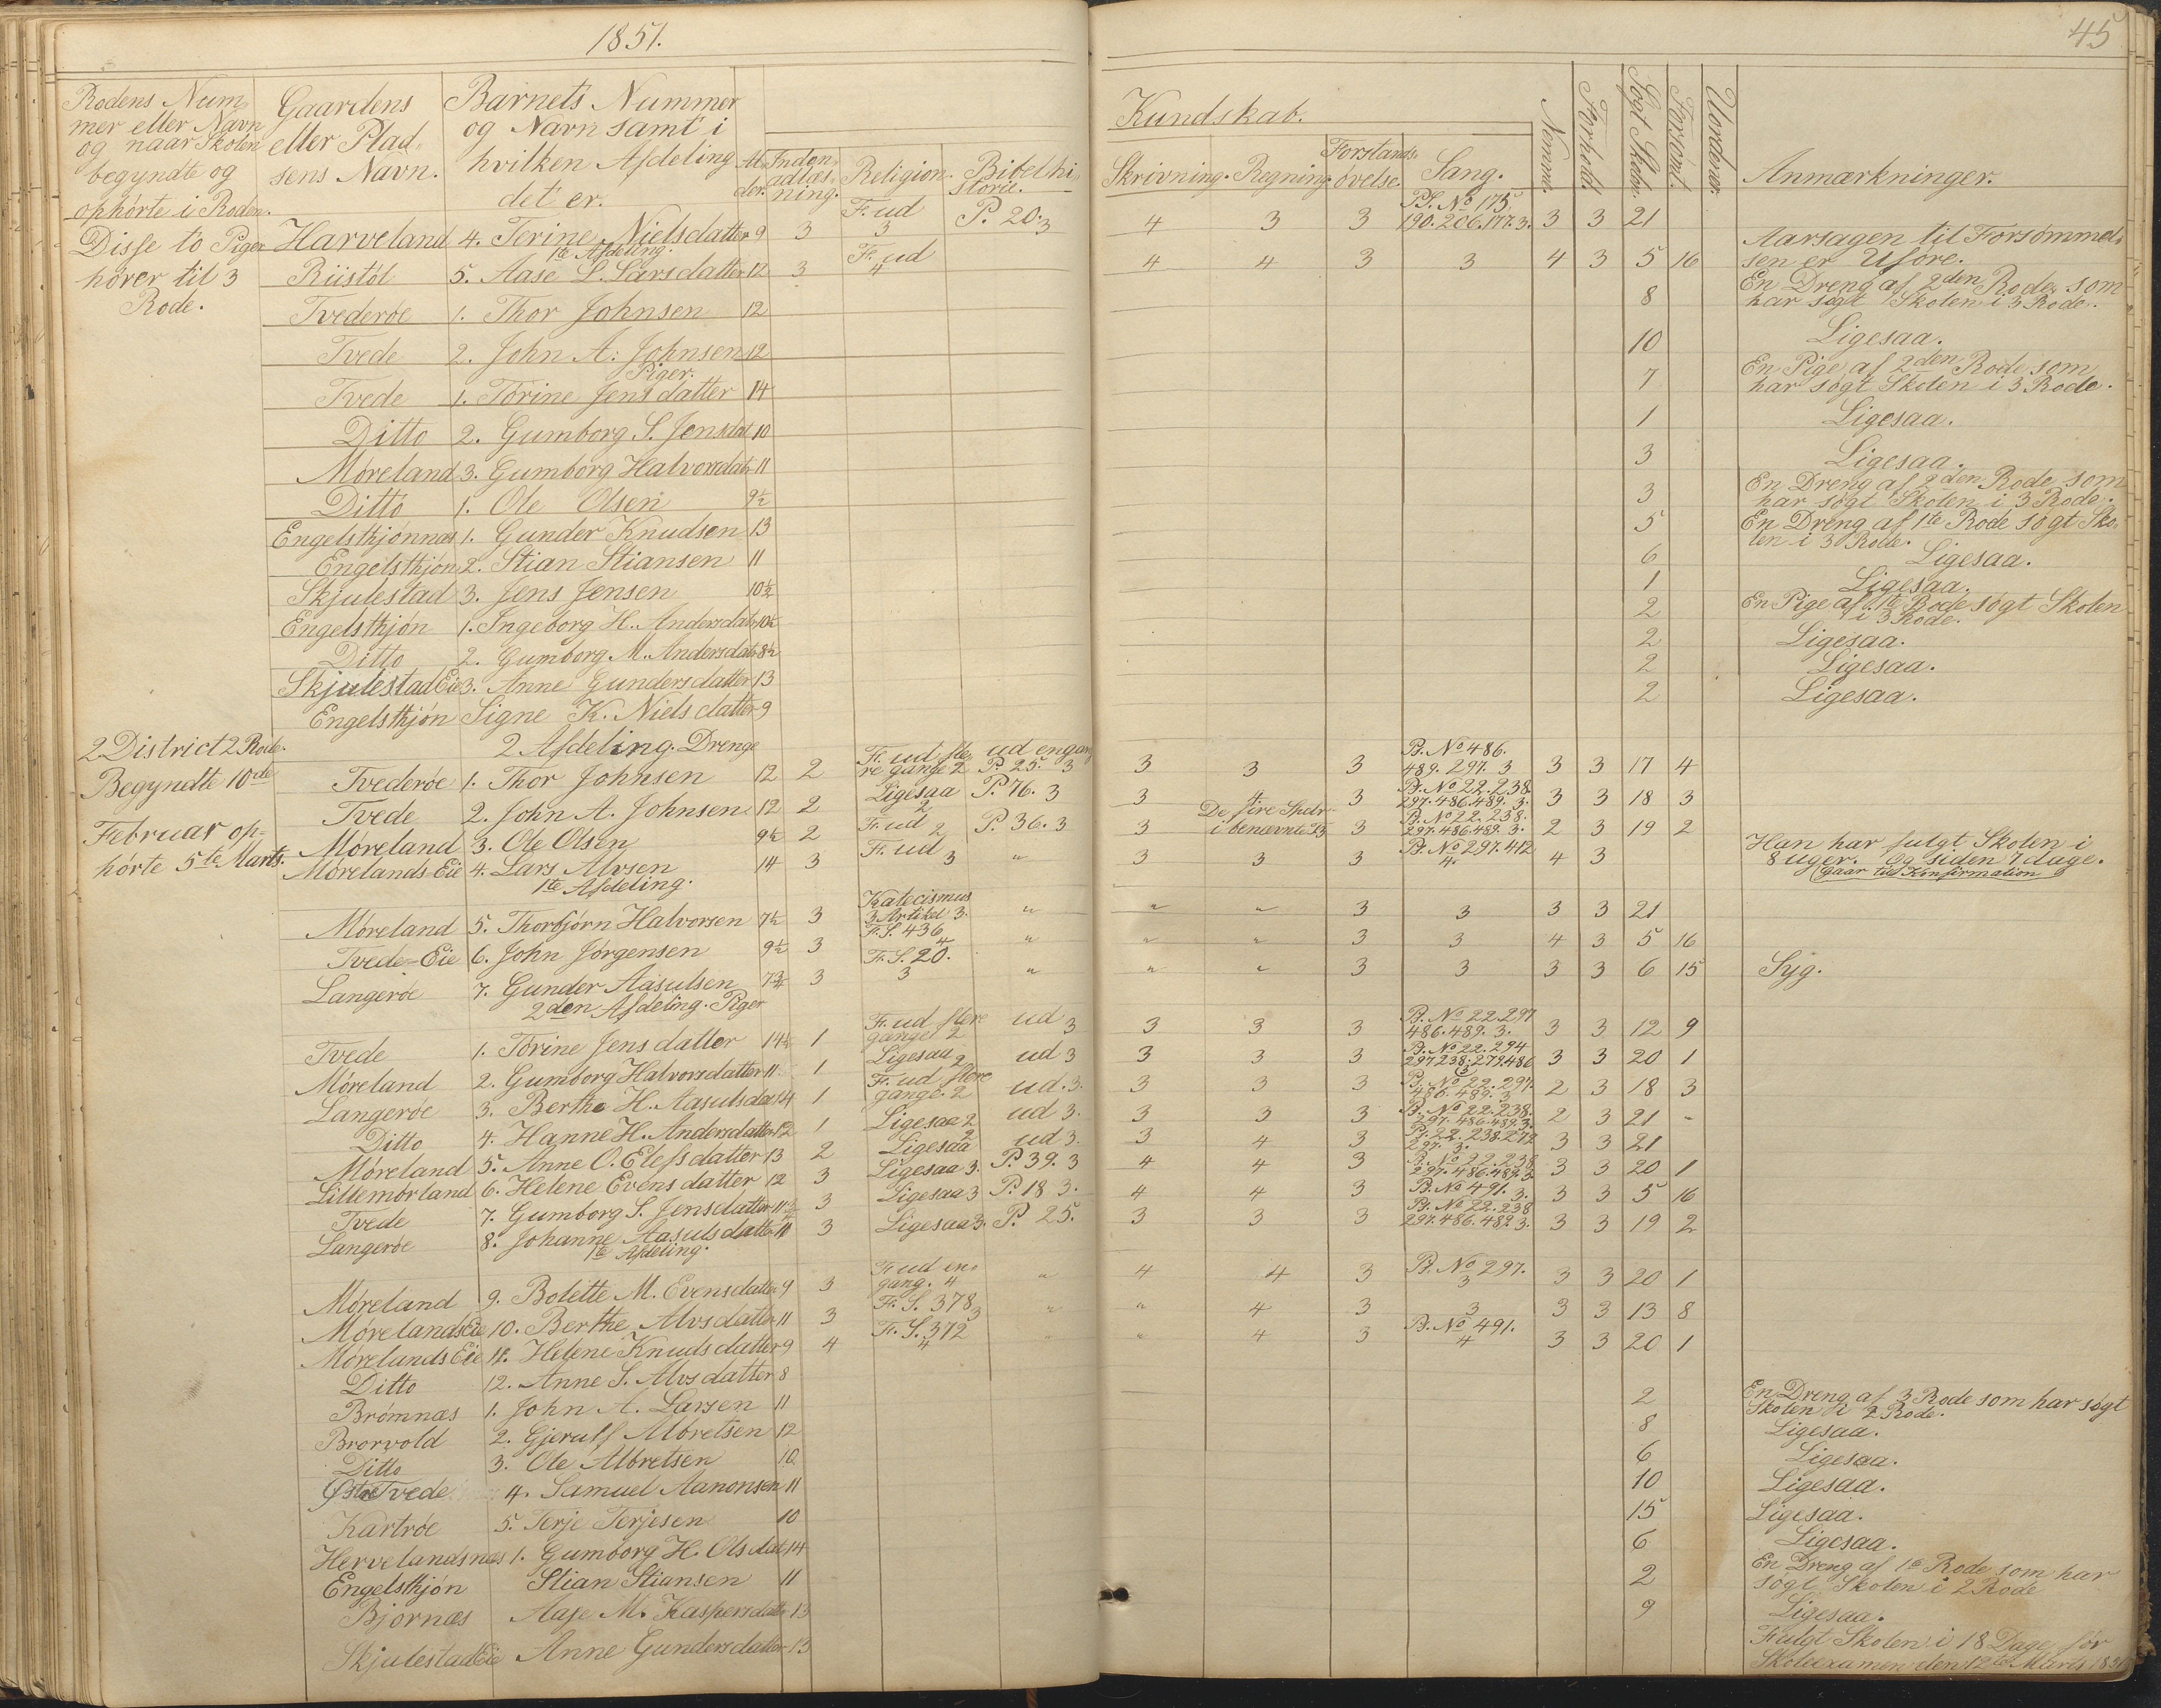 1851.
45
Rodens Num-
mer eller Navn
og naar Skolen
begyndte og
ophørte i Roden.
Gaardens
eller Plad-
sens Navn.
Barnets Nummer
og Navn samt i
hvilken Afdeling
det er.
Al-
der.
Inden-
adlæs-
ning.
Religion.
Bibelhi-
storie.
Kundskab.
Skrivning. Regning.
Forstands-
øvelse.
Sang.
Nemme.
Forhold.
Søgt Skolen.
Forsømt.
Uordener.
Anmærkninger.
Disse to Piger
hører til 3
Rode.
Harveland 4. Terine Nielsdatter 9 3 Fr. ud 3 P. 20. 3 4 3 3 Ps. No 175. 190. 206. 177. 3. 3 3 21
1te Afdeling.
Riistøl 5. Aase L. Larsdatter 12 3 Fr. ud 4 4 4 3 3 4 3 5 16 Aarsagen til Forsømmel-
sen er Uføre.
Tvederøe 1. Thor Johnsen 12 8 En Dreng af 2den Rode som
har søgt Skolen i 3 Rode.
Tvede 2. John A. Johnsen 12 10 Ligesaa.
Piger.
Tvede 1. Torine Jensdatter 14 7 En Pige af 2den Rode som
har søgt Skolen i 3 Rode.
Ditto 2. Gumborg S. Jensdat 10 1 Ligesaa.
Møreland 3. Gumborg Halvorsdatr 11 3 Ligesaa.
Ditto 1. Ole Olsen 9½ 3 En Dreng af 2den Rode som
har søgt Skolen i 3 Rode.
Engelsthjønnæs 1. Gunder Knudsen 13 5 En Dreng af 1te Rode søgt Sko-
len i 3 Rode.
Engelsthjøn 2. Stian Stiansen 11 6 Ligesaa.
Skjulestad 3. Jens Jensen 10½ 1 Ligesaa.
Engelsthjøn 1. Ingeborg H. Andersdatr 10½ 2 En Pige af 1te Rode søgt Skolen
i 3 Rode.
Ditto 2. Gumborg M. Andersdatr 8½ 2 Ligesaa.
Skjulestad Eie 3. Anne Gundersdatter 13 2 Ligesaa.
Engelsthjøn Signe K. Nielsdatter 9 2 Ligesaa.
2 District 2 Rode.
Begyndte 10de
Februar op-
hørte 5te Marts.
2 Afdeling. Drenge
Tvederøe 1. Thor Johnsen 12 2 Fr. ud fle-
re gange 2 ud engang P. 25. 3 3 3 3 Ps. No 486. 489. 297. 3 3 3 17 4
Tvede 2. John A. Johnsen 12 2 Ligesaa 2 P. 76. 3 3 4 3 Ps. No 22. 238. 297. 486. 489. 3. 3 3 18 3
Møreland 3. Ole Olsen 9½ 2 Fr. ud 2 P. 36. 3 3 De fire i benævnte 3 Ps. No 22. 238. 297. 486. 489. 3. 2 3 19 2
Mørelands-Eie 4. Lars Alvsen 14 3 Fr. ud 3 " 3 3 3 Ps. No 297. 412 4. 4 3 Han har fulgt Skolen i
8 uger. Og siden 7 dage.
gaar til Konfirmation
1te Afdeling.
Møreland 5. Thorbjørn Halvorsen 7½ 3 Katecismus
3 Artikel 3. " " " 3 3 3 3 21
Tvede-Eie 6. John Jørgensen 9½ 3 Fr. S. 436 4 " " " 3 3 4 3 5 16
Langerøe 7. Gunder Aasulsen 7¾ 3 Fr. S. 20. 3 " " " 3 3 3 3 6 15 Syg.
2den Afdeling. Piger
Tvede 1. Torine Jensdatter 14½ 1 Fr. ud flere
gange 2 ud 3 3 3 3 Ps. No 22. 297 486. 489. 3. 3 3 12 9
Møreland 2. Gumborg Halvorsdatter 11 1 Ligesaa 2 ud 3 3 3 3 Ps. No 22. 294 297 238. 279. 486 3 3 3 20 1
Langerøe 3. Berthe H. Aasulsdat 14 1 Fr. ud flere
gange. 2 ud. 3. 3 3 3 Ps. No 22. 297. 486. 489. 3 2 3 18 3
Ditto 4. Hanne H. Andersdatter 12 1 Ligesaa 2 ud 3. 3 3 3 Ps. No 22. 238. 297. 486. 489. 3. 2 3 21 -
Møreland 5. Anne O. Elefsdatter 13 2 Ligesaa 2 ud 3. 3 4 3 Ps. 22. 238. 272 297. 3. 3 3 21
Lillemørland 6. Helene Evensdatter 12 3 Ligesaa 3. P. 39. 3 4 4 3 Ps. No 22. 238 297. 486. 489. 3 3 3 20 1
Tvede 7. Gumborg S. Jensdatter 11 3 Ligesaa 3 P. 18 3. 4 4 3 Ps. No 491. 3. 3 3 5 16
Langerøe 8. Johanne Aasulsdatter 11 3 Ligesaa 3. P. 25. 3 3 3 Ps. No 22. 238 297. 486. 489. 3. 3 3 19 2
1te Afdeling.
Møreland 9. Bolette M. Evensdatter 9 3 Fr. ud en-
gang. 4 " 4 4 3 Ps. No 297. 3 3 3 20 1
Mørelands Eie 10. Berthe Alvsdatter 11 3 Fr. S. 378 3 " " 4 3 3 3 3 13 8
Mørelands Eie 11. Helene Knudsdatter 9 4 Fr. S. 372 4 " " 4 3 Ps. No 491. 4 3 3 20 1
Ditto 12. Anne S. Alvsdatter 8
Brømnæs 1. John A. Larsen 11 2 En Dreng af 3 Rode som har søgt
Skolen i 2 Rode.
Brorvold 2. Gjerulf Albretsen 12 8 Ligesaa.
Ditto 3. Ole Albretsen 10 6 Ligesaa.
Østre Tvede 4. Samuel Aanonsen 11 10 Ligesaa.
Kartrøe 5. Terje Terjesen 10 15 Ligesaa.
Hervelandsnæs 1. Gumborg H. Olsdat 14 6 Ligesaa.
Engelsthjøn Stian Stiansen 11 2 En Dreng af 1te Rode som har
søgt Skolen i 2 Rode
Bjørnæs Aase M. Kaspersdatter 13 9 Ligesaa.
Skjulestad Eie Anne Gundersdatter 13 Fulgt Skolen i 18 Dage før
Skoleexamen den 12te Marts 1851